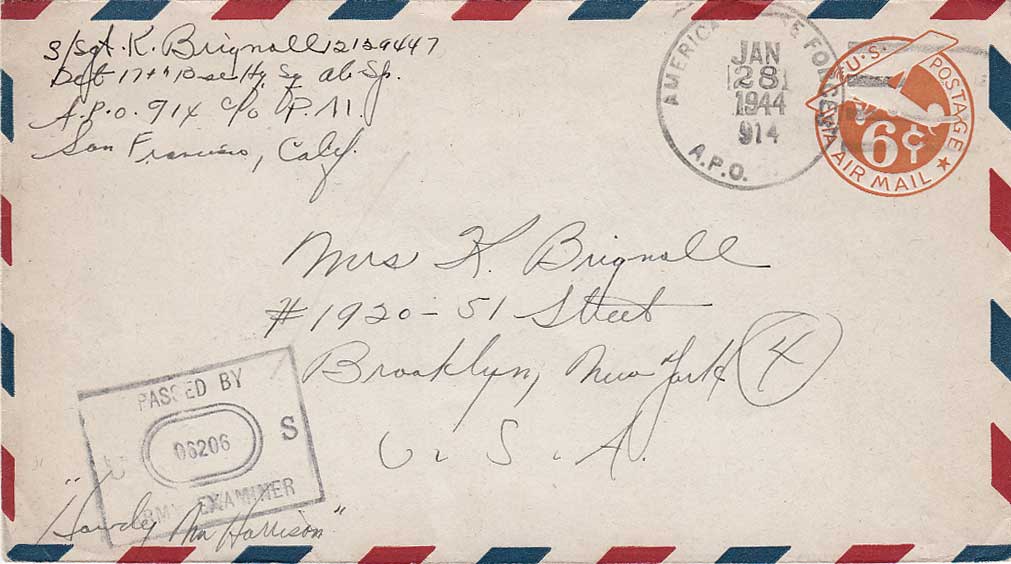 S/Sgt. K. Brignall 12129447
Det 17th Base Hq Sq Ab. Sp.
A.P.O. 914 c/o P.M.
San Francisco, Calif.
AMERICAN FORCES
A.P.O.
JAN
28
1944
914
U.S. POSTAGE
6¢
VIA AIR MAIL
Mrs K. Brignall
#1920-51 Street
Brooklyn, New York (4)
U. S. A.
PASSED BY
U 06206 S
ARMY EXAMINER
"Howdy Mr Harrison"